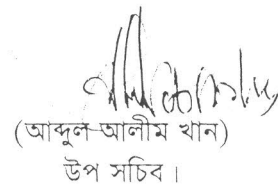 (আব্দুল আলীম খান)
উপ সচিব।